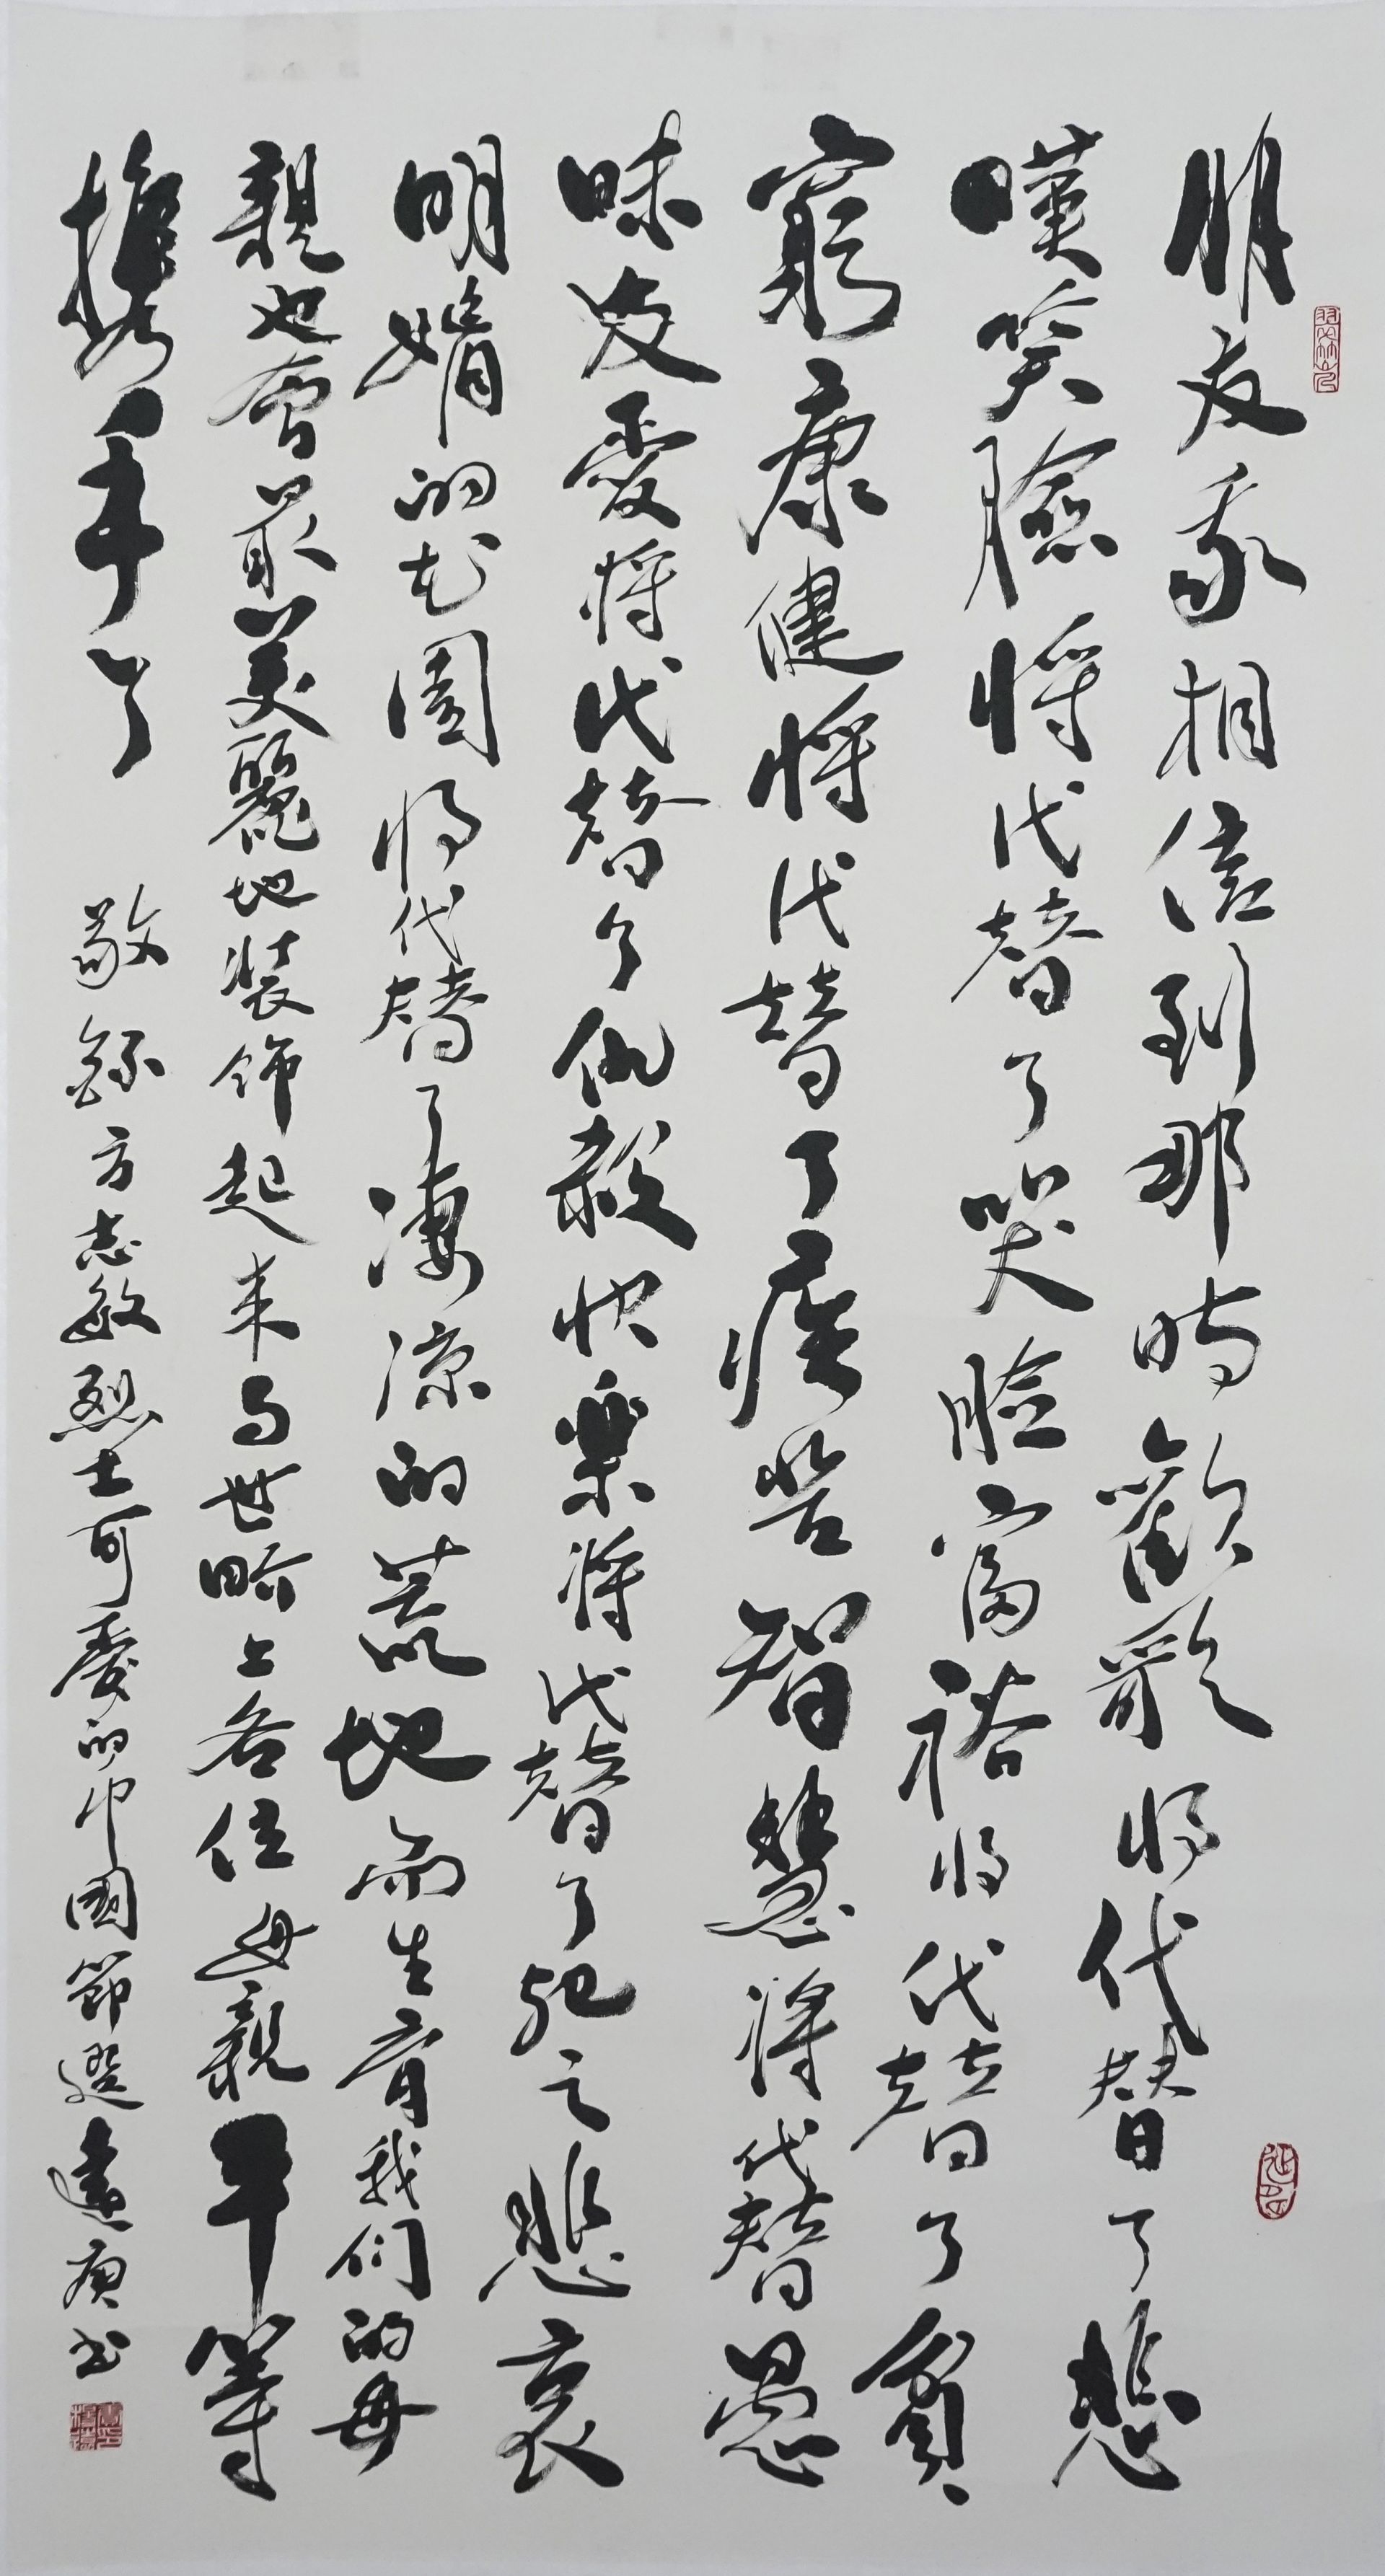 朋友我相信到那时歡歌将代替了悲
嘆笑臉将代替了哭脸富裕将代替了貧
窮康健将代替了疾苦智慧将代替愚
昧友愛将代替了仇殺快樂将代替了死之悲哀
明媚的花園将代替了凄凉的荒地而生育我们的母
親也會最美麗地装饰起来与世界上各位母親平等
携手了
敬録方志敏烈士可愛的中國節選遠庚书